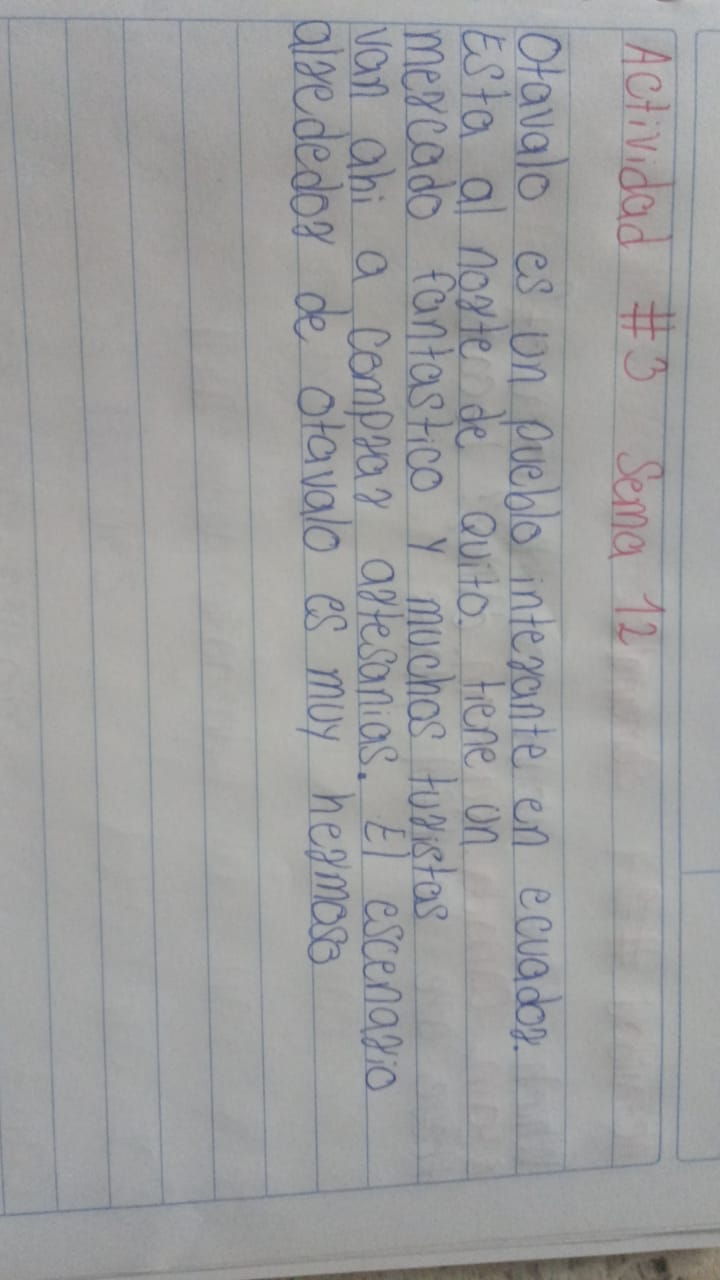 Actividad #3 Sema 12
Otavalo es un pueblo interante en ecuador.
Esta al norte de Quito. tiene un
mercado fantastico y muchos turistas
van ahi a comprar artesanias. El escenario
alrededor de otavalo es muy hermoso